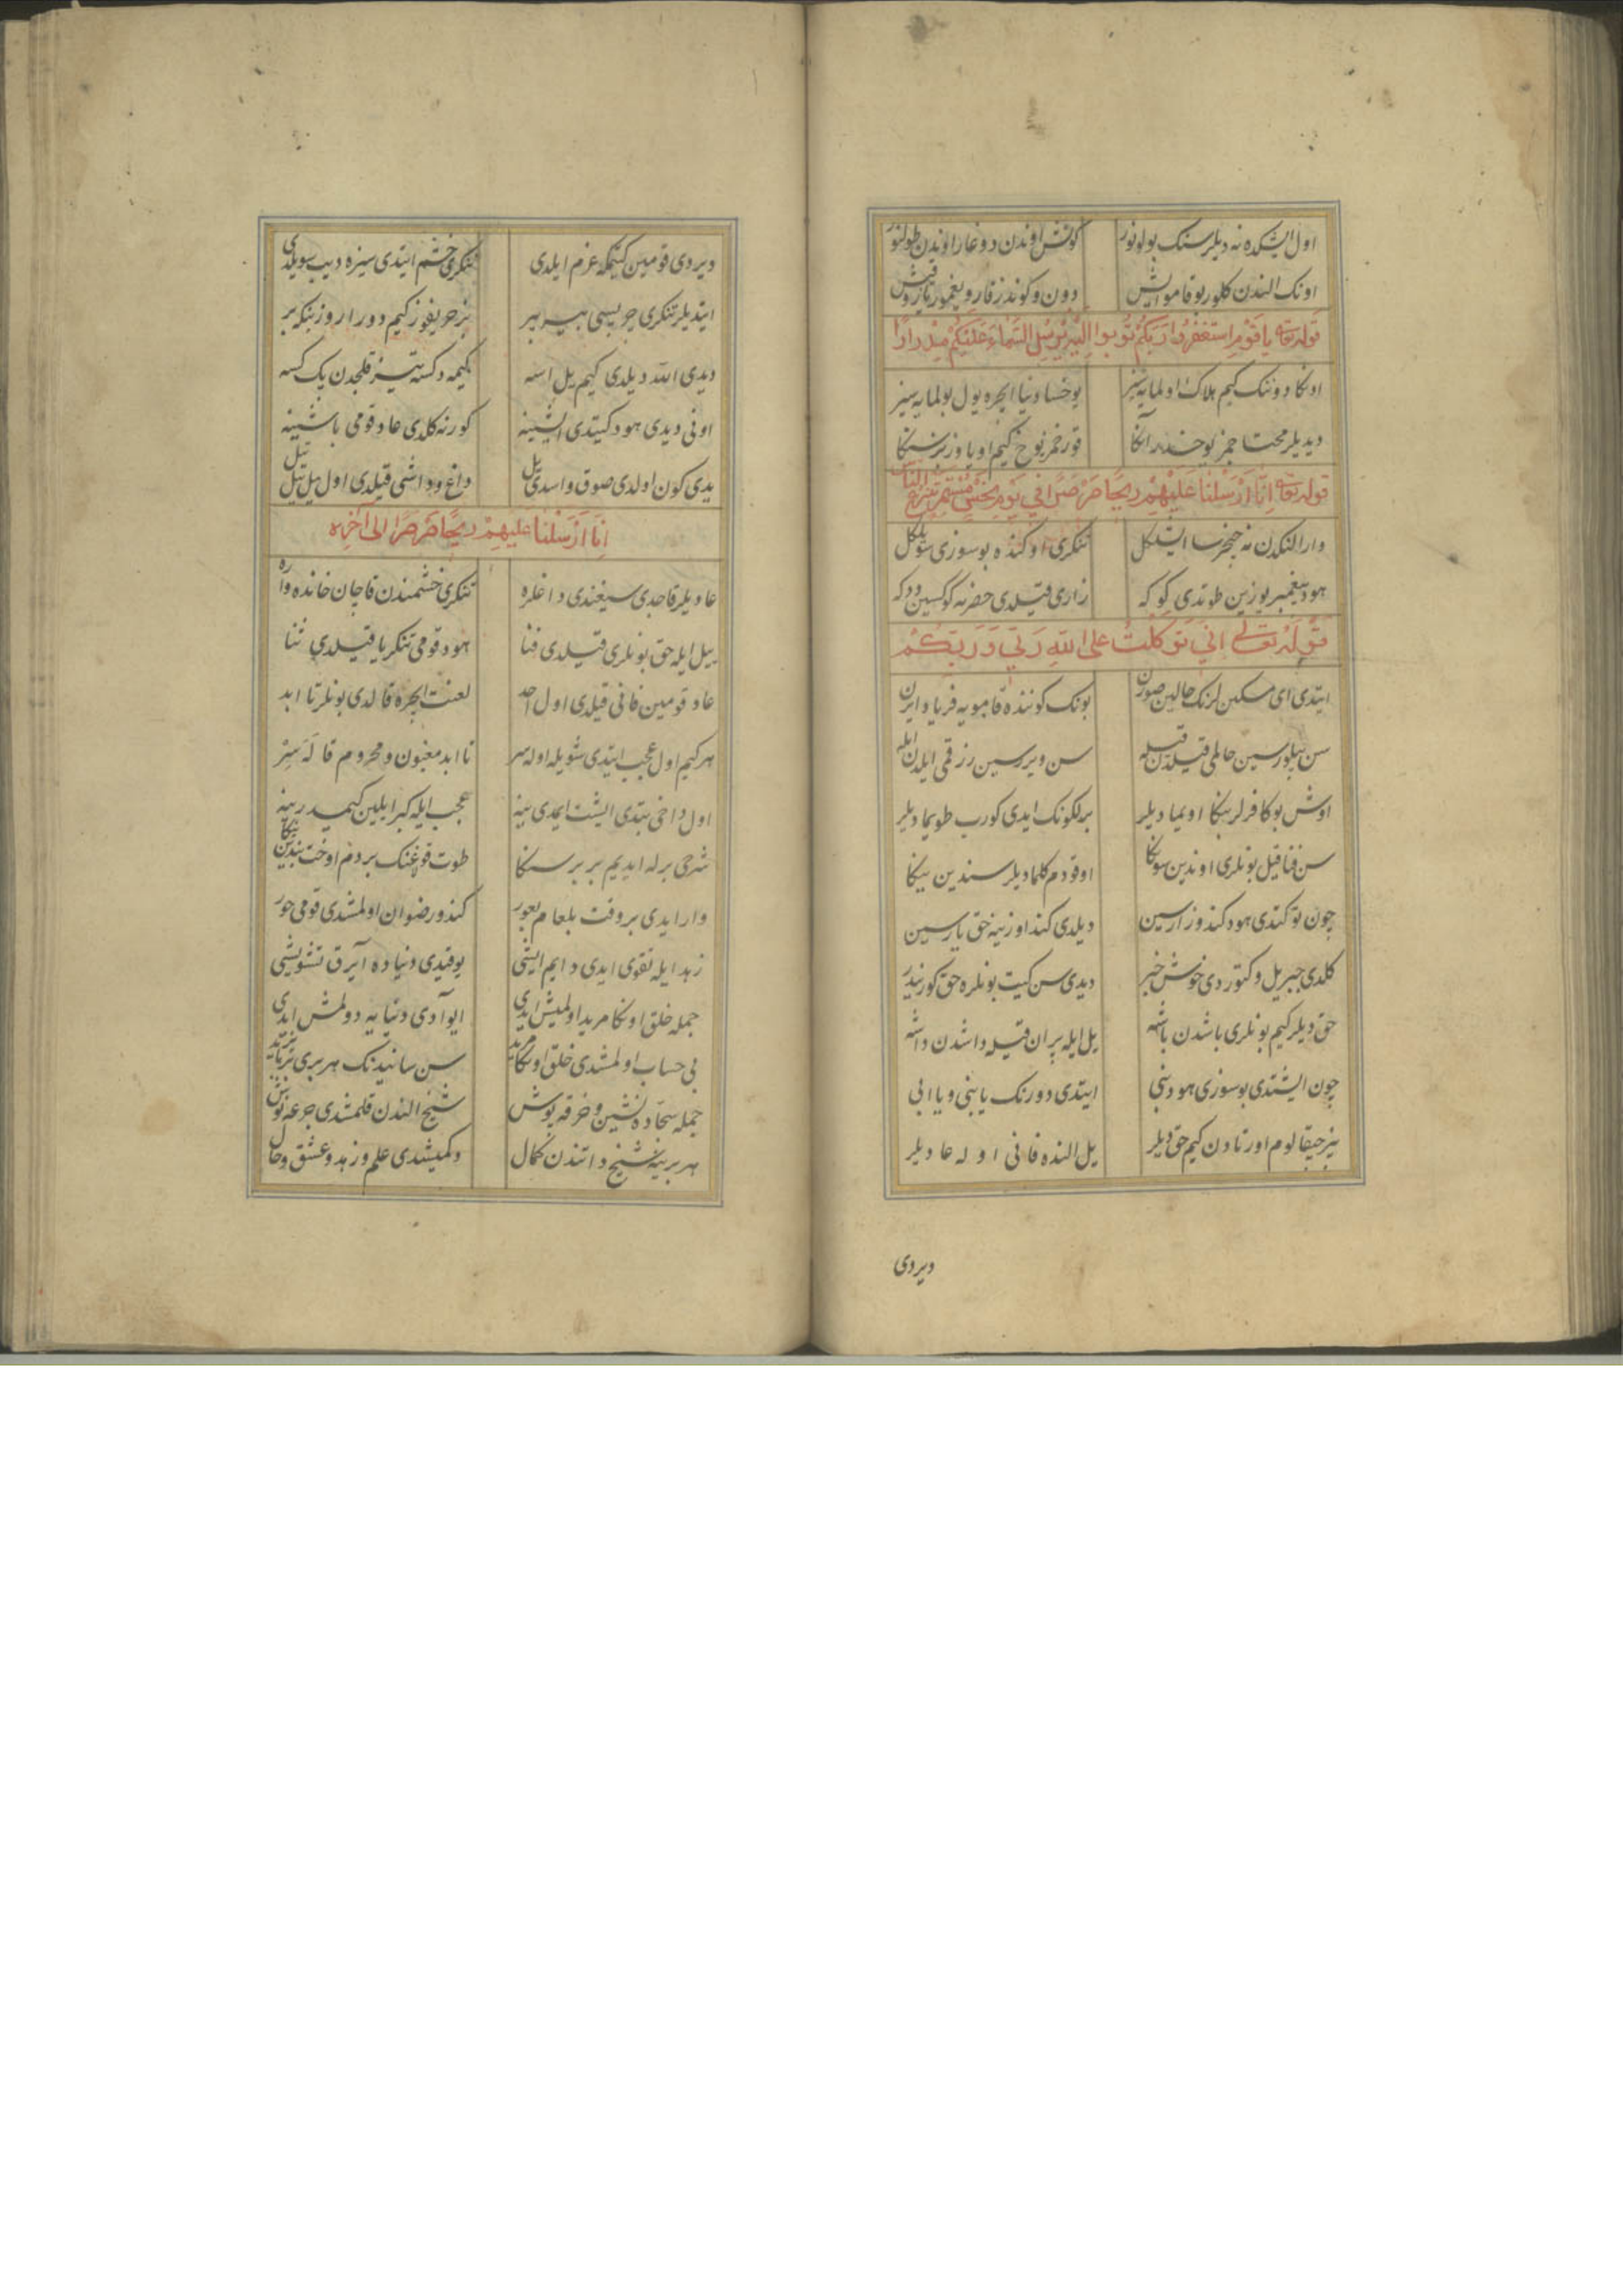 اول ایشکده نه دیلرسنک بولونور کونش اوندن دوغار اوندن طولنور
اونک الندن کلور بو قامو ایش دون و کوندز قار و یغمور یاز و قیش
قوله تعه یا قَوْمِ استغفرُوا رَبَّکُمْ تُوبوا اِلَیْهِ یُرْسِلِ السَّمَاءَ عَلَیْکُمْ مِدْرَارًا
اونکا دونک کیم هلاک اولمایه سیز یوخسا دنیا ایچره یول بولمایه سیز
دیدیلر محتاجمز یوخدر آنکا قورخمز نوح کیم اویاوز بز سنکا
قوله تعه اِنّا اَرْسَلْنا عَلَیْهِمْ رِیحًا صَرْصَرًا فی یَوْمِ نَحْسٍ مُسْتَمِرٍّ تَنْزِعُ النّاسَ
وار الکدن نه چیخرسا ایشلکل تنکری اوکنده بو سوزی سویلکل
هود پیغمبر یوزین طوتدی کوکه زاری قیلدی حضرته کوکسین دوکه
قَوْلُهُ تعالی انّی تَوَکَّلْتُ علی اللّهِ رَبّی وَ رَبِّکُمْ
ایتدی ای مسکین لرنک حالین صورن بونک کوننده قامویه فریاد ایرن
سن بیلورسین حالمی قیلدن قیله سن ویررسین رزقمی ایلدن ایله
اوش بو کافرلر بنکا اویمادیلر برلکونک ایدی کورب طویمادیلر
سن فنا قیل بونلری اوندین سونکا اوقودم کلمادیلر سندین ینکا
چون توکتدی هود کندوزارسین دیلدی کند اوزینه حق یارسین
کلدی جبریل و کتوردی خوش خبر دیدی سن کیت بونلره حق کوریندر
حق دیلر کیم بونلری باشدن باشه یل ایله پران قیله داشدن داشه
چون ایشتدی بو سوزی هود نبی ایتدی دورنک یا بنی و یا ابی
بیز چیقالوم اورتادن کیم حق دیلر یل النده فانی اوله عادیلر
ویردی
ویردی قومین کیتمکه عزم ایلدی تنکری خشم ایتدی سیزه دیب سویلدی
ایتدیلر تنکری چریسی بیر بیر بز حریفوز کیم دورار وز بنکه بر
دیدی الله دیلدی کیم یل اسه کیمه دکسه تیز قلجدن یک کسه
اونی دیدی هود کیتدی ایشینه کور نه کلدی عاد قومی باشینه
یدی کون اولدی صوق و اسدی یل داغ و داشی قیلدی اول یل تیل تیل
اِنّا اَرْسَلْنا عَلیهِمْ ریحًا صَرْصَرًا الی آخره
عادیلر قاچدی سیغندی داغلره تنکری خشمندن قاچان خانده واره
ییل ایله حق بونلری قیلدی فنا هود قومی تنکریا قیلدی ثنا
عاد قومین فانی قیلدی اول احد لعنت ایچره قالدی بونلر تا ابد
هر کیم اول عجب ایتدی شویله اولاسر تا ابد مغبون و محروم قالَسِرْ
اول داخی بتدی ایشت ایمدی ینه عجب ایله کبر ایلین کیمدرینه
شرحی برله ایدیم بر بر سنکا طوت قولاغنک بر دم اوخت بندین ینکا
وار ایدی بر وقت بلعام بعور کندو رضوان اولمشدی قومی حور
زهد ایله تقوی ایدی دایم ایشی یوقیدی دنیاده آیرق تشویشی
جمله خلق اونکا مرید اولمیش ایدی ایو آدی دنیایه دولمش ایدی
بی حساب اولمشدی خلق اونکا مرید سن سانیدنک هر بری
جمله سجاده نشین و خرقه پوش شیخ الندن قلمشدی جرعه نوش
هر برینه شیخ داتندن کمال دکمیشدی علم و زهد و عشق و حال